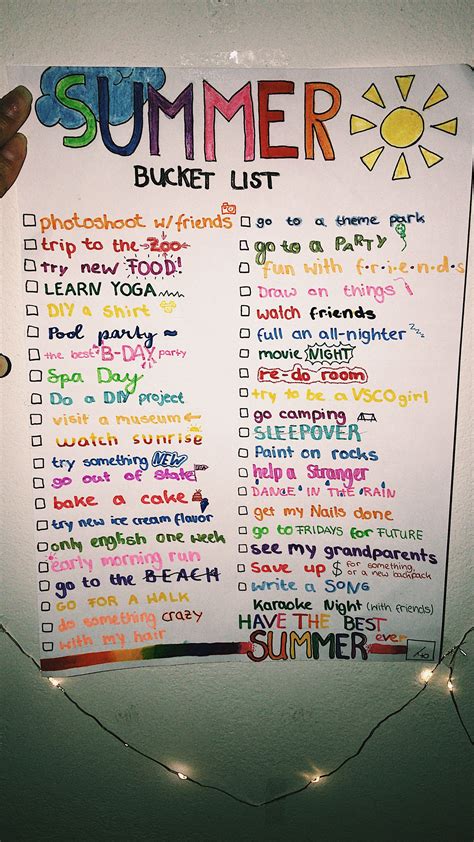 SUMMER
BUCKET LIST
photoshoot w/friends
trip to the Zoo
try new FOOD!
LEARN YOGA
DIY a shirt
Pool party
the best B-DAY party
Spa Day
Do a DIY project
visit a museum
watch sunrise
try something NEW
go out of state
bake a cake
try new ice cream flavor
only english one week
early morning run
go to the BEACH
GO FOR A WALK
do something crazy
with my hair
go to a theme park
go to a PARTY
fun with f.r.i.e.n.d.s
Draw on things
watch friends
full an all-nighter zzz
movie NIGHT
re-do room
try to be a VSCO girl
go camping
SLEEPOVER
Paint on rocks
help a Stranger
DANCE IN THE RAIN
get my Nails done
go to FRIDAYS for FUTURE
see my grandparents
save up $ for something,
or a new backpack
write a SONG
Karaoke Night (with friends)
HAVE THE BEST
SUMMER ever